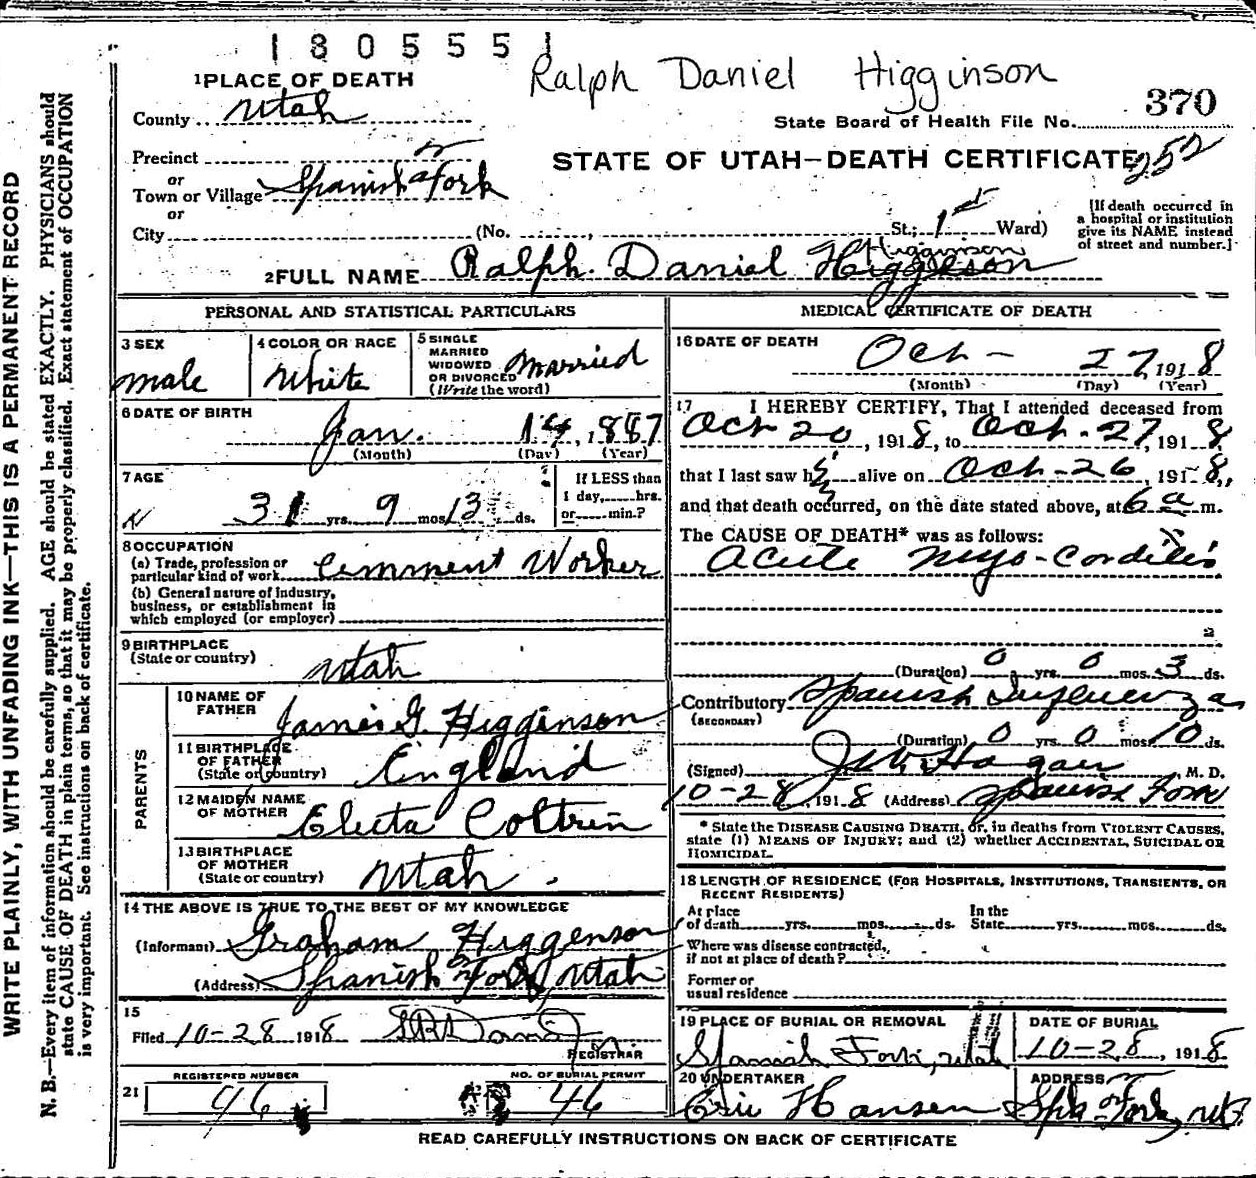 1805551
Ralph Daniel Higginson
1 PLACE OF DEATH
370
County Utah
State Board of Health File No.
Precinct
STATE OF UTAH—DEATH CERTIFICATE 252
or
Town or Village Spanish Fork
or
City (No. , St.; 1st Ward)
[If death occurred in
a hospital or institution
give its NAME instead
of street and number.]
Higginson
2 FULL NAME Ralph Daniel Higgleson
PERSONAL AND STATISTICAL PARTICULARS
3 SEX
male
4 COLOR OR RACE
White
5 SINGLE
MARRIED
WIDOWED
OR DIVORCED
(Write the word)
Married
6 DATE OF BIRTH
Jan. 14, 1887
(Month) (Day) (Year)
7 AGE
31 yrs. 9 mos. 13 ds.
If LESS than
1 day, hrs.
or min.?
8 OCCUPATION
(a) Trade, profession or
particular kind of work Cemment Worker
(b) General nature of industry,
business, or establishment in
which employed (or employer)
9 BIRTHPLACE
(State or country)
Utah
PARENTS
10 NAME OF
FATHER
James G. Higginson
11 BIRTHPLACE
OF FATHER
(State or country)
England
12 MAIDEN NAME
OF MOTHER
Electa Coltrin
13 BIRTHPLACE
OF MOTHER
(State or country)
Utah.
14 THE ABOVE IS TRUE TO THE BEST OF MY KNOWLEDGE
(Informant) Graham Higgenson
(Address) Spanish Fork, Utah
15
Filed 10-28 1918
REGISTRAR
21
REGISTERED NUMBER
96
NO. OF BURIAL PERMIT
46
MEDICAL CERTIFICATE OF DEATH
16 DATE OF DEATH
Oct- 27, 1918
(Month) (Day) (Year)
17 I HEREBY CERTIFY, That I attended deceased from
Oct 20, 1918, to Oct-27, 1918,
that I last saw h alive on Oct-26, 1918,
and that death occurred, on the date stated above, at 6 a m.
The CAUSE OF DEATH* was as follows:
Acute Myo-Corditis
(Duration) 0 yrs. 0 mos. 3 ds.
Contributory Spanish Influenza
(SECONDARY)
(Duration) 0 yrs. 0 mos. 10 ds.
(Signed) J.W. Hagan, M. D.
10-28, 1918 (Address) Spanish Fork
* State the DISEASE CAUSING DEATH, or, in deaths from VIOLENT CAUSES,
state (1) MEANS OF INJURY; and (2) whether ACCIDENTAL, SUICIDAL OR
HOMICIDAL.
18 LENGTH OF RESIDENCE (FOR HOSPITALS, INSTITUTIONS, TRANSIENTS, OR
RECENT RESIDENTS)
At place
of death yrs. mos. ds.
In the
State yrs. mos. ds.
Where was disease contracted,
if not at place of death?
Former or
usual residence
19 PLACE OF BURIAL OR REMOVAL
Spanish Fork, Utah
DATE OF BURIAL
10-28, 1918
20 UNDERTAKER
Eric Hansen
ADDRESS
Spa Fork, Ut.
READ CAREFULLY INSTRUCTIONS ON BACK OF CERTIFICATE
WRITE PLAINLY, WITH UNFADING INK—THIS IS A PERMANENT RECORD
N. B.—Every item of information should be carefully supplied. AGE should be stated EXACTLY. PHYSICIANS should
state CAUSE OF DEATH in plain terms, so that it may be properly classified. Exact statement of OCCUPATION
is very important. See instructions on back of certificate.